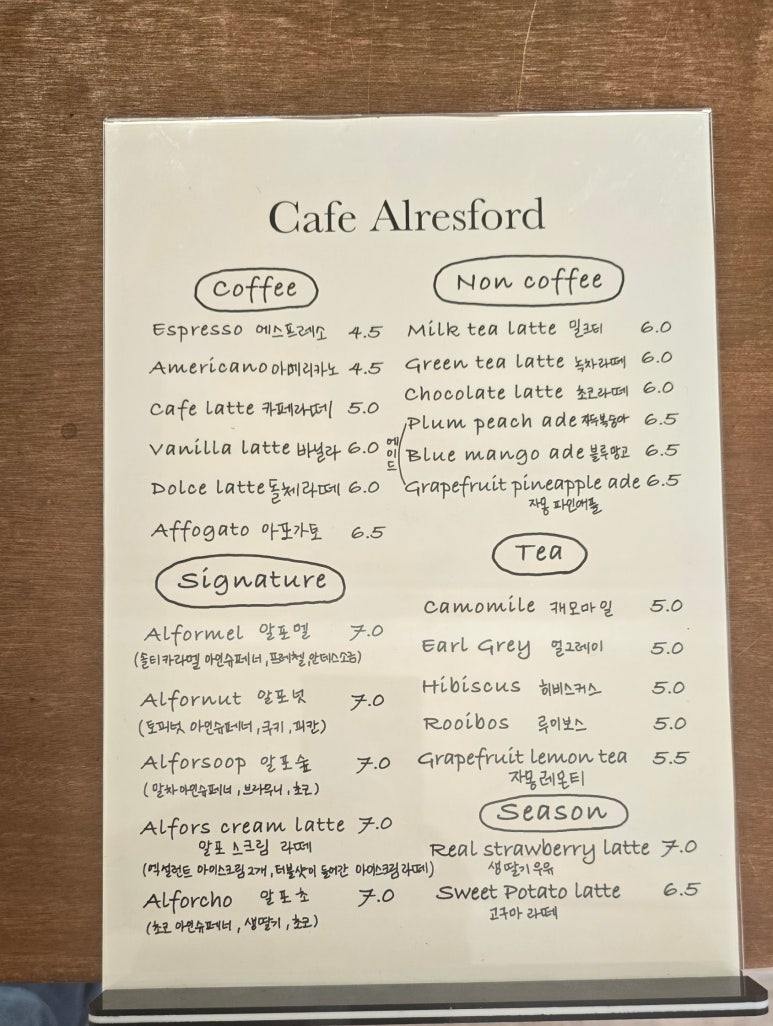 Cafe Alresford
Coffee
Espresso 에스프레소 4.5
Americano 아메리카노 4.5
Cafe latte 카페라떼 5.0
Vanilla latte 바닐라 6.0
Dolce latte 돌체라떼 6.0
Affogato 아포가토 6.5
Signature
Alformel 알포멜 7.0
(솔티카라멜 아인슈페너, 프레첼, 안데스소금)
Alfornut 알포넛 7.0
(토피넛 아인슈페너, 쿠키, 피칸)
Alforsoop 알포숲 7.0
(말차 아인슈페너, 브라우니, 초코)
Alfors cream latte 7.0
알포 스크림 라떼
(엑설런트 아이스크림 2개, 터블샷이 들어간 아이스크림 라떼)
Alforcho 알포초 7.0
(초코 아인슈페너, 생딸기, 초코)
Non coffee
Milk tea latte 밀크티 6.0
Green tea latte 녹차라떼 6.0
Chocolate latte 초코라떼 6.0
에이드
Plum peach ade 자두복숭아 6.5
Blue mango ade 블루망고 6.5
Grapefruit pineapple ade 6.5
자몽 파인애플
Tea
Camomile 캐모마일 5.0
Earl Grey 얼그레이 5.0
Hibiscus 히비스커스 5.0
Rooibos 루이보스 5.0
Grapefruit lemon tea 5.5
자몽레몬티
Season
Real strawberry latte 7.0
생딸기우유
Sweet Potato latte 6.5
고구마 라떼